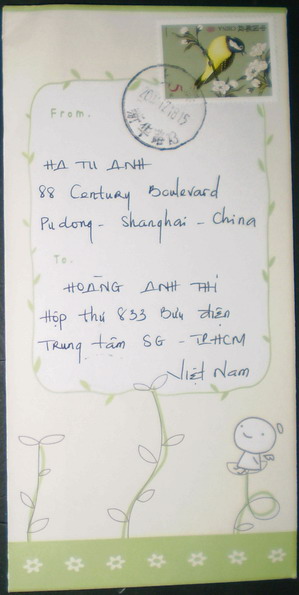 From.
HA TU ANH
88 Century Boulevard
Pudong - Shanghai - China
To.
HOÀNG ANH THI
Hộp thư 833 Bưu điện
Trung tâm SG - TPHCM
Việt Nam